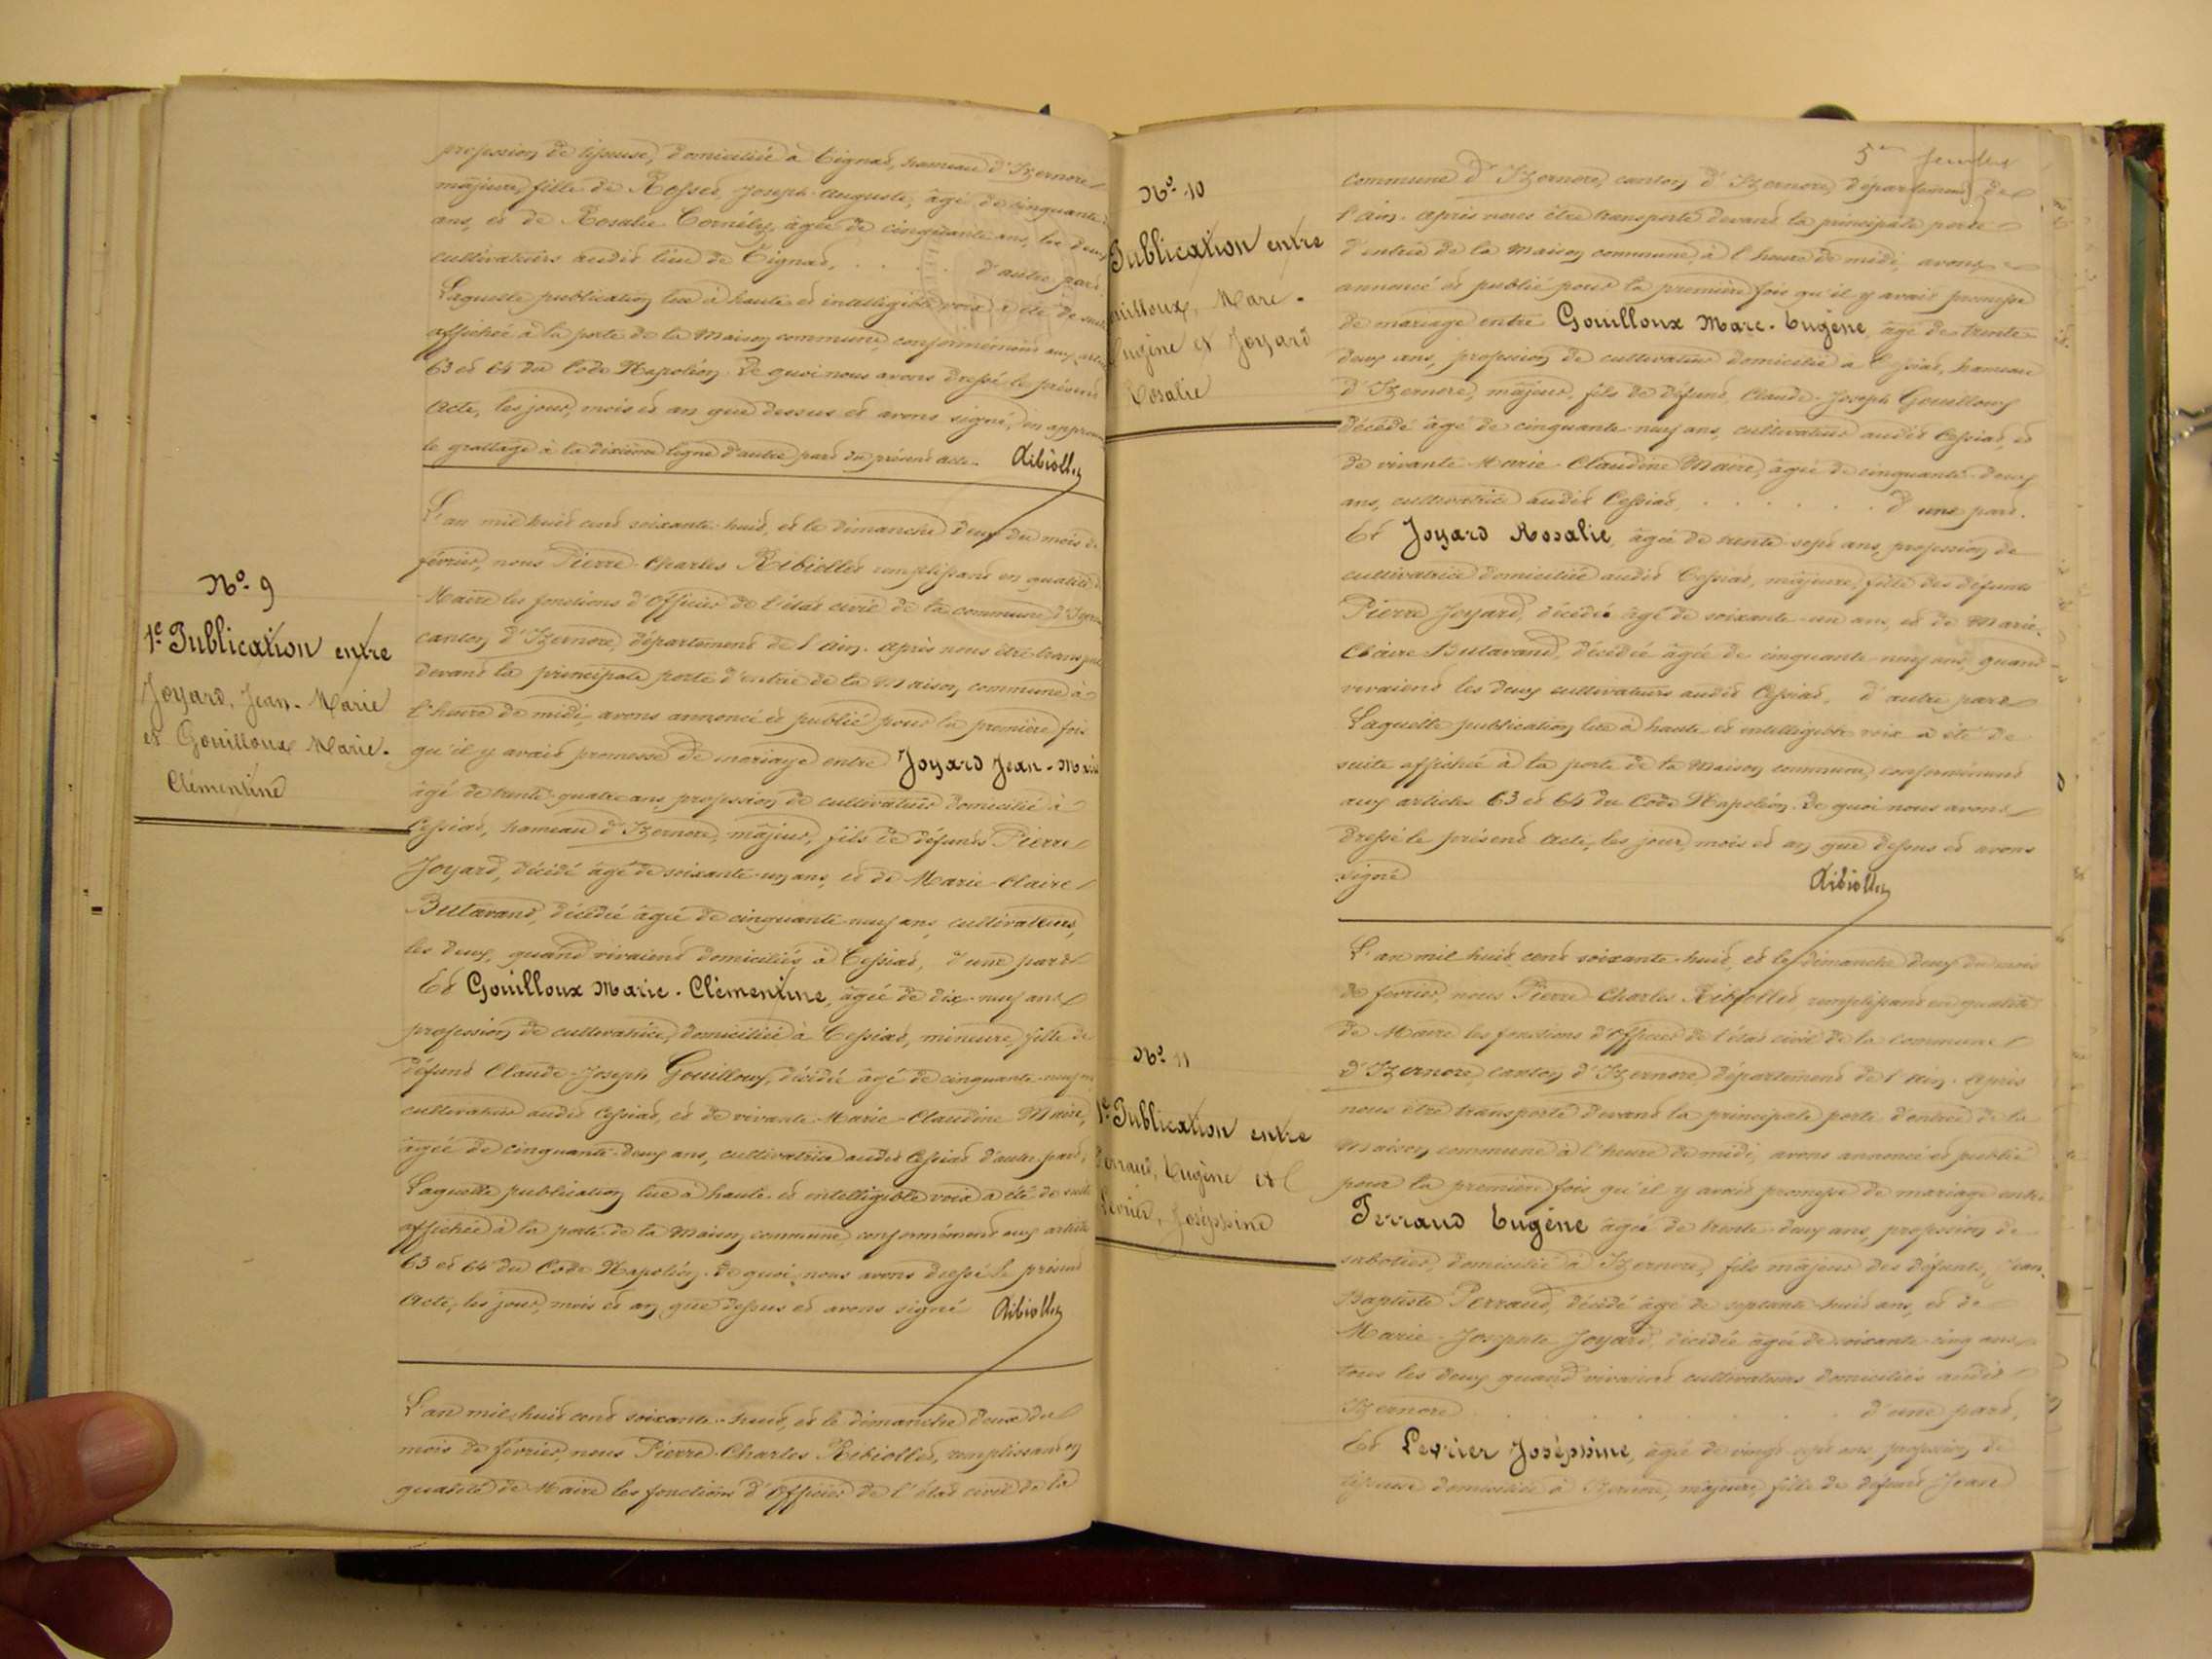 profession de tisseuse, domiciliée à Tignat, hameau d'Izernore
majeure, fille de Rosset, Joseph-Auguste, âgé de cinquante
ans, et de Rosalie Cornély, âgée de cinquante ans, les deux
cultivateurs audit lieu de Tignat, . . . . d'autre part.
Laquelle publication lue à haute et intelligible voix a été de suite
affichée à la porte de la Maison commune, conformément aux articles
63 et 64 du Code Napoléon. De quoi nous avons dressé le présent
Acte, les jour, mois et an que dessus et avons signé, en approuvant
le grattage à la dixième ligne d'autre part du présent acte. Ribiollet
N° 9
1e Publication entre
Joyard, Jean-Marie
et Gouilloux Marie-
Clémentine
L'an mil huit cent soixante-huit, et le dimanche deux du mois de
février, nous Pierre-Charles Ribiollet remplissant en qualité de
Maire les fonctions d'Officier de l'état civil de la commune d'Izernore
canton d'Izernore, département de l'Ain. Après nous être transporté
devant la principale porte d'entrée de la Maison commune à
l'heure de midi, avons annoncé et publié pour la première fois
qu'il y avait promesse de mariage entre Joyard Jean-Marie
âgé de trente-quatre ans, profession de cultivateur domicilié à
Cessiat, hameau d'Izernore, majeur, fils de défunts Pierre
Joyard, décédé âgé de soixante-un ans, et de Marie-Claire
Butavand, décédée âgée de cinquante-neuf ans, cultivateurs,
les deux, quand vivaient domiciliés à Cessiat, d'une part
Et Gouilloux Marie-Clémentine, âgée de dix-neuf ans
profession de cultivatrice, domiciliée à Cessiat, mineure, fille de
défunt Claude-Joseph Gouilloux, décédé âgé de cinquante-neuf ans
cultivateur audit Cessiat, et de vivante Marie-Claudine Maire,
âgée de cinquante-deux ans, cultivatrice audit Cessiat d'autre part,
Laquelle publication lue à haute et intelligible voix a été de suite
affichée à la porte de la Maison commune, conformément aux articles
63 et 64 du Code Napoléon. De quoi nous avons dressé le présent
Acte, les jour, mois et an que dessus et avons signé Ribiollet
L'an mil huit cent soixante-huit, et le dimanche deux du
mois de février, nous Pierre-Charles Ribiollet, remplissant en
qualité de Maire les fonctions d'Officier de l'état civil de la
5me feuillet
N° 10
Publication entre
Gouilloux, Marc-
Eugène et Joyard
Rosalie
commune d'Izernore, canton d'Izernore, département de
l'Ain. Après nous être transporté devant la principale porte
d'entrée de la Maison commune, à l'heure de midi, avons
annoncé et publié pour la première fois qu'il y avait promesse
de mariage entre Gouilloux Marc-Eugène, âgé de trente-
deux ans, profession de cultivateur domicilié à Cessiat, hameau
d'Izernore, majeur, fils de défunt, Claude-Joseph Gouilloux
décédé âgé de cinquante-neuf ans, cultivateur audit Cessiat, et
de vivante Marie-Claudine Maire, âgée de cinquante-deux
ans, cultivatrice audit Cessiat, . . . . . . d'une part.
Et Joyard Rosalie, âgée de trente-sept ans, profession de
cultivatrice domiciliée audit Cessiat, majeure, fille des défunts
Pierre Joyard, décédé âgé de soixante-un ans, et de Marie-
Claire Butavand, décédée âgée de cinquante-neuf ans, quand
vivaient les deux cultivateurs audit Cessiat, d'autre part
Laquelle publication lue à haute et intelligible voix a été de
suite affichée à la porte de la Maison commune, conformément
aux articles 63 et 64 du Code Napoléon. De quoi nous avons
dressé le présent Acte, les jour, mois et an que dessus et avons
signé Ribiollet
N° 11
1e Publication entre
Perraud, Eugène et
Levrier, Joséphine
L'an mil huit cent soixante-huit, et le dimanche deux du mois
de février, nous Pierre-Charles Ribiollet, remplissant en qualité
de Maire les fonctions d'Officier de l'état civil de la commune
d'Izernore, canton d'Izernore, département de l'Ain. Après
nous être transporté devant la principale porte d'entrée de la
Maison commune à l'heure de midi, avons annoncé et publié
pour la première fois qu'il y avait promesse de mariage entre
Perraud Eugène âgé de trente-deux ans, profession de
sabotier, domicilié à Izernore, fils majeur des défunts, Jean-
Baptiste Perraud, décédé âgé de septante-huit ans, et de
Marie-Josephte Joyard, décédée âgée de soixante-cinq ans
tous les deux quand vivaient cultivateurs domiciliés audit
Izernore . . . . . . . . d'une part,
Et Levrier Joséphine, âgée de vingt-sept ans, profession de
tisseuse domiciliée à Izernore, majeure, fille de défunt